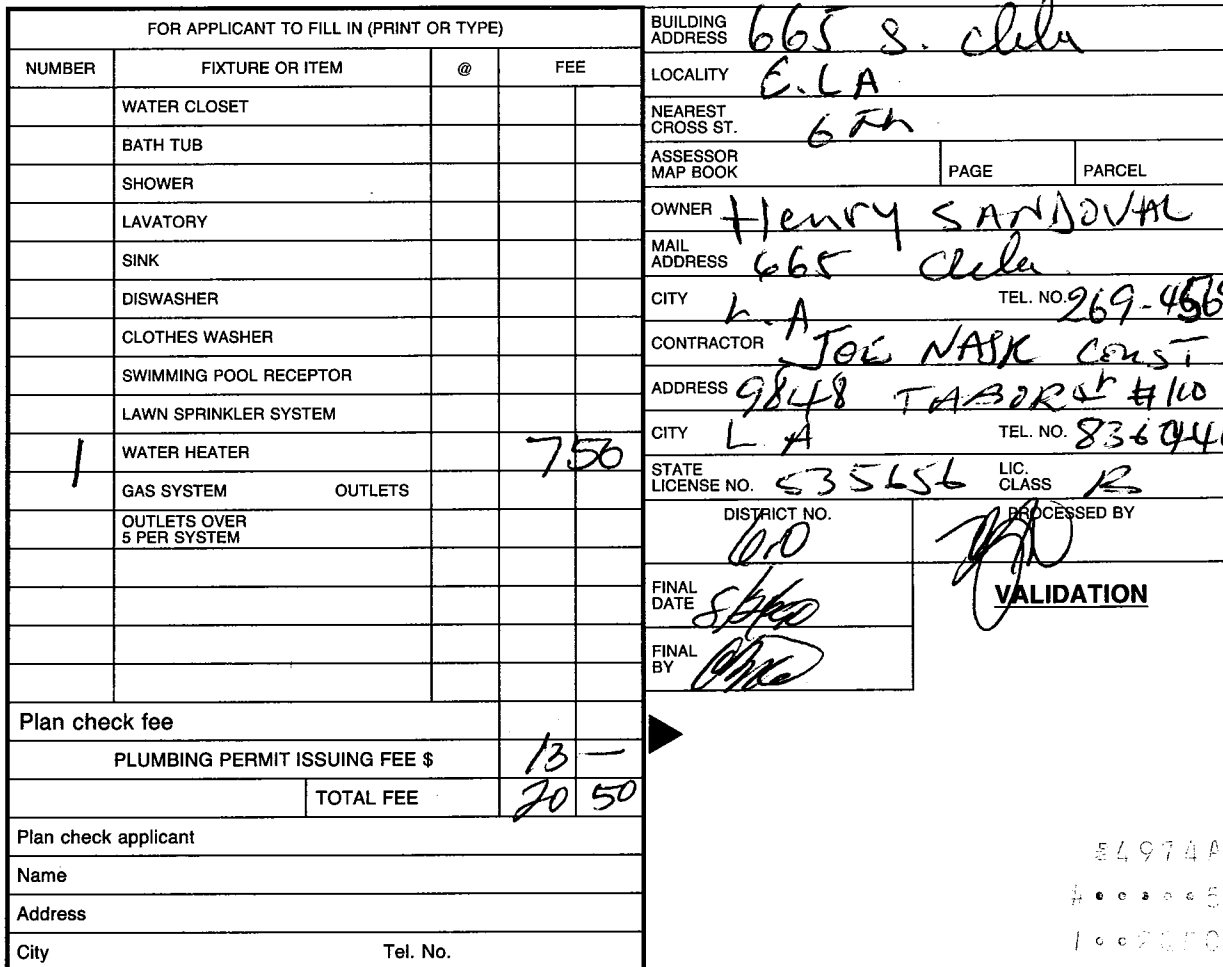 FOR APPLICANT TO FILL IN (PRINT OR TYPE)
NUMBER FIXTURE OR ITEM @ FEE
WATER CLOSET
BATH TUB
SHOWER
LAVATORY
SINK
DISWASHER
CLOTHES WASHER
SWIMMING POOL RECEPTOR
LAWN SPRINKLER SYSTEM
1 WATER HEATER 7 50
GAS SYSTEM OUTLETS
OUTLETS OVER
5 PER SYSTEM
Plan check fee
PLUMBING PERMIT ISSUING FEE $ 13 —
TOTAL FEE 20 50
Plan check applicant
Name
Address
City Tel. No.
BUILDING
ADDRESS 665 S. Clela
LOCALITY E. LA
NEAREST
CROSS ST. 6th
ASSESSOR
MAP BOOK PAGE PARCEL
OWNER Henry SANDOVAL
MAIL
ADDRESS 665 Clela
CITY L.A TEL. NO. 269-456
CONTRACTOR JOE NASK CONST
ADDRESS 9848 TABOR St #110
CITY L.A TEL. NO.
STATE
LICENSE NO. 535656 LIC.
CLASS B
DISTRICT NO. PROCESSED BY
FINAL
DATE
VALIDATION
FINAL
BY